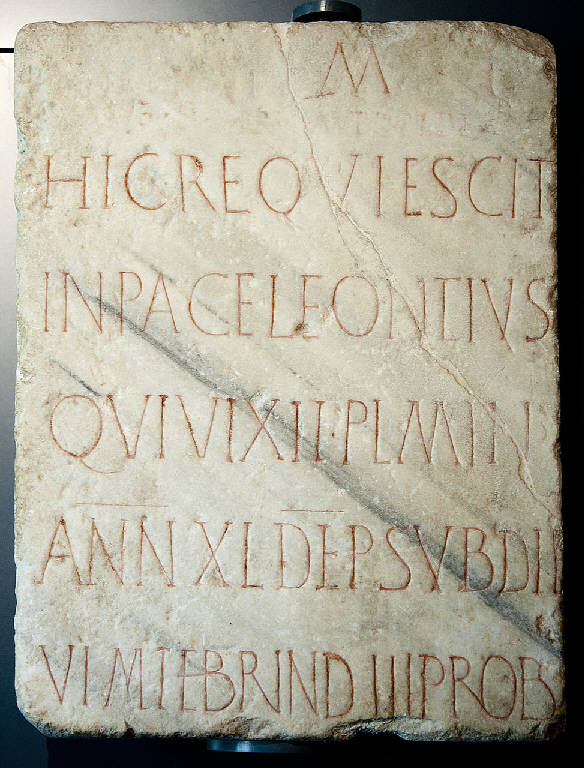 M
HICREQVIESCIT
INPACELEONTIVS
QVIVIXIT·PLMIN
ANNXLDEPSVBDII
VIMTEBRINDIIIPROB